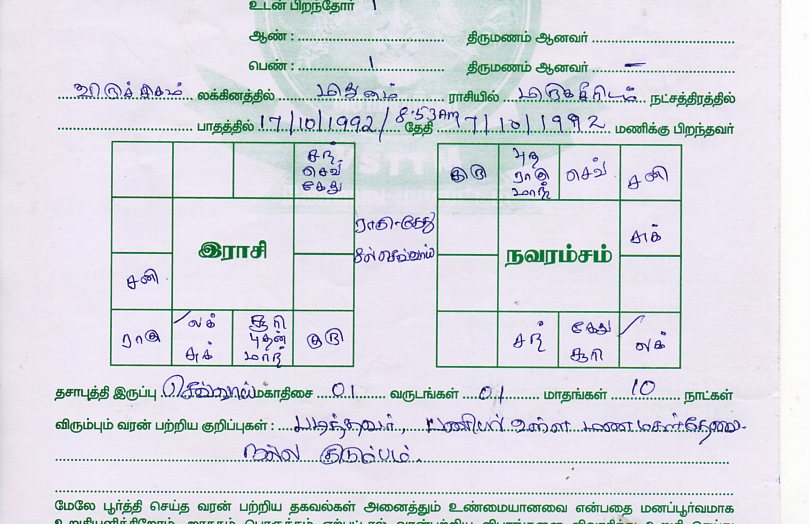 உடன் பிறந்தோர் 1
ஆண் : திருமணம் ஆனவர்
பெண் : 1 திருமணம் ஆனவர் –
லக்கினத்தில் மிதுனம் ராசியில் மிருகசீரிடம் நட்சத்திரத்தில்
பாதத்தில் 17/10/1992/ 8.53AM தேதி 17/10/1992 மணிக்கு பிறந்தவர்
சந் செவ் கேது
சனி
ராகு
லக் சுக்
சூரி புதன் மாந்
குரு
இராசி
ராகு-கேது
குரு
புத ராகு மாந்
செவ்
சனி
சுக்
சந்
கேது சூரி
லக்
நவரம்சம்
தசாபுத்தி இருப்பு செவ்வாய் மகாதிசை 01 வருடங்கள் 01 மாதங்கள் 10 நாட்கள்
விரும்பும் வரன் பற்றிய குறிப்புகள் : படித்தவர், பணியில் உள்ள மணமகன் தேவை.
நல்ல குடும்பம்.
மேலே பூர்த்தி செய்த வரன் பற்றிய தகவல்கள் அனைத்தும் உண்மையானவை என்பதை மனப்பூர்வமாக